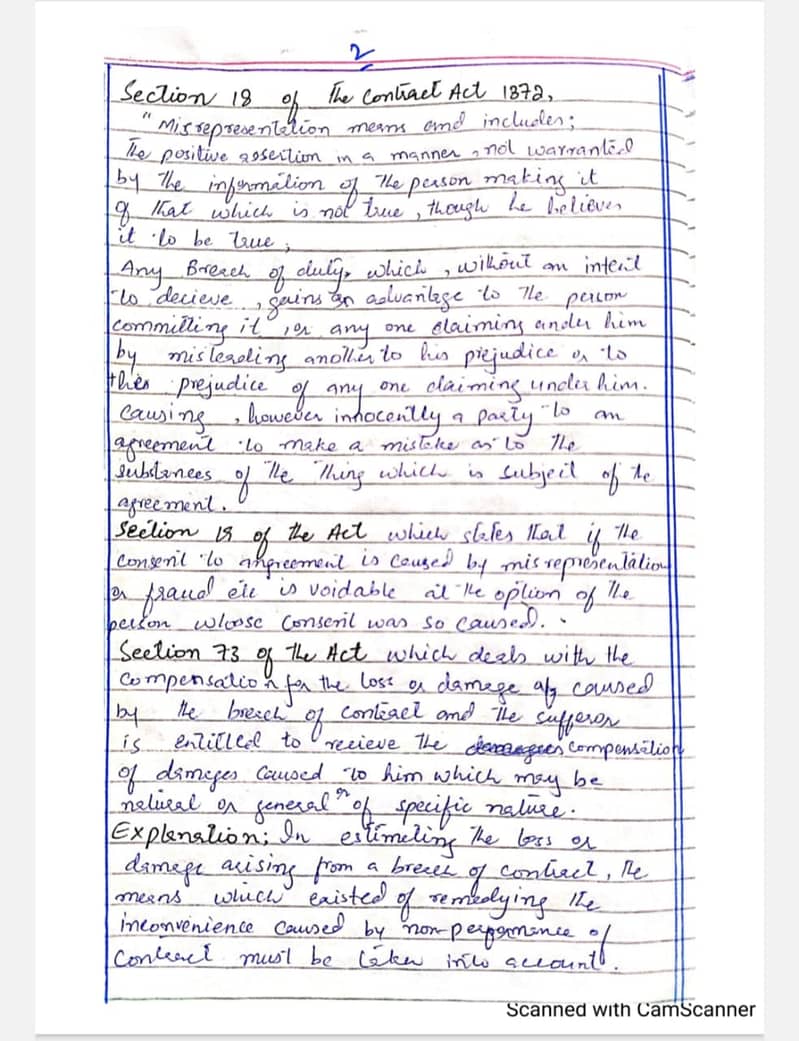 2
Section 18 of The Contract Act 1872,
"Misrepresentation means and includes;
The positive assertion in a manner, not warranted
by the information of the person making it
of that which is not true, though he believes
it to be true;
Any Breach of duty, which, without an intent
to decieve, gains an advantage to the person
committing it, or any one claiming under him
by misleading another to his prejudice or to
the prejudice of any one claiming under him.
Causing, however innocently a party to an
agreement to make a mistake as to the
substances of the thing which is subject of the
agreement.
Section 19 of the Act which states that if the
Consent to angreement is caused by misrepresentation
or fraud etc is voidable at the option of the
person whose Consent was so caused.
Section 73 of the Act which deals with the
Compensation for the loss or damage caused
by the breach of contract and the sufferor
is entitled to recieve the compensation
of damages caused to him which may be
natural or general or of specific nature.
Explanation; In estimating the loss or
damage arising from a breach of contract, the
means which existed of remedying the
inconvenience caused by non-performance of
Contract must be taken into account.
Scanned with CamScanner